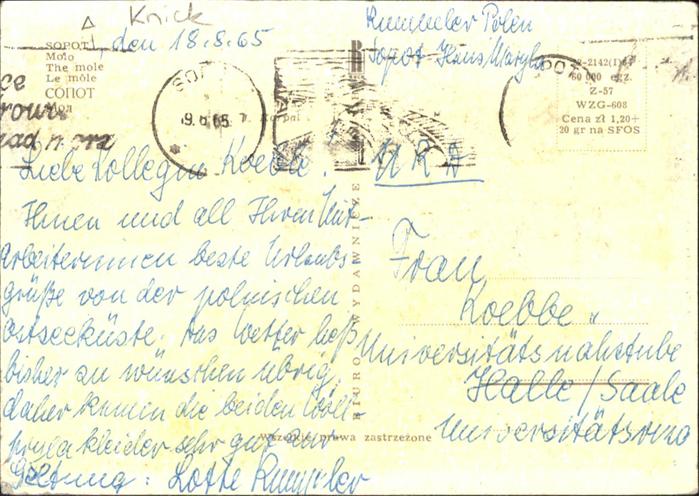 Knick
SOPOT, den 18.8.65
Molo
The mole
Le môle
СОПОТ
Мол
Rummeler Polen
Sopot Haus Maryla
60 000 egz.
Z-57
WZG-608
Cena zł 1,20+
20 gr na SFOS
nad morz
SOP
65
Liebe Kollegin Koebbe!
Ihnen und all Ihren Mit-
arbeiterinnen beste Urlaubs-
grüße von der polnischen
Ostseeküste. Das Wetter ließ
bisher zu wünschen übrig,
daher kamen die beiden Woll-
kleider sehr gut zur
Geltung: Lotte Rummeler
BIURO WYDAWNICZE
Wszelkie prawa zastrzeżone
Frau
Koebbe
Universitätsnähstube
Halle/Saale